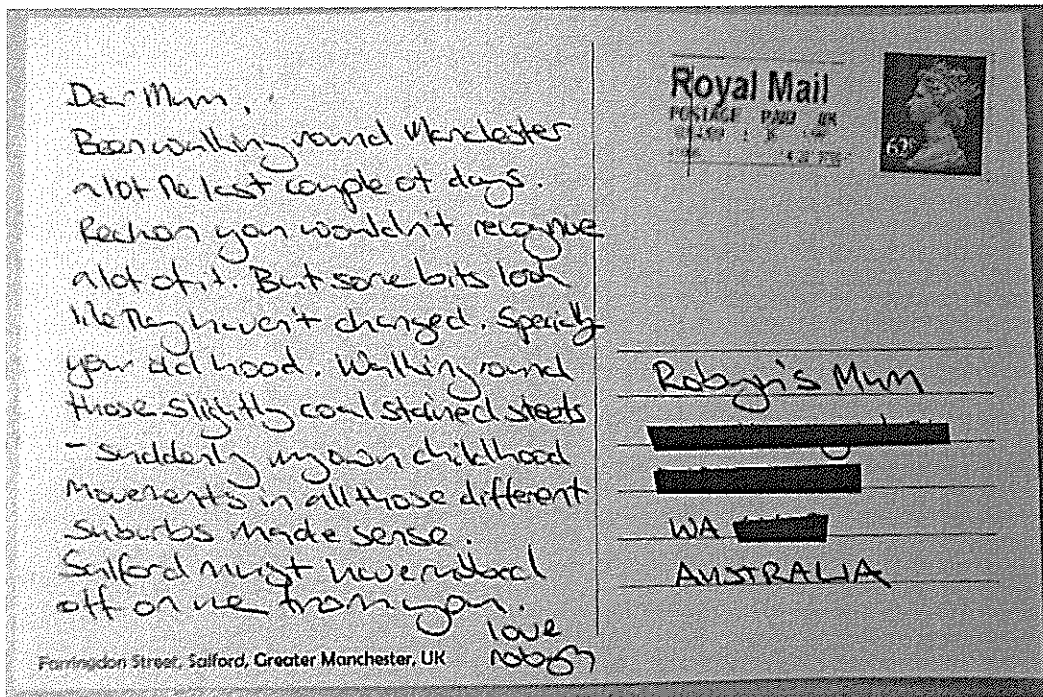 Dear Mum,
Been walking round Manchester
a lot the last couple of days.
Reckon you wouldn't recognise
a lot of it. But some bits look
like they haven't changed. Specially
your old hood. Walking round
those slightly coal stained streets
- suddenly my own childhood
movements in all those different
suburbs made sense.
Salford must have rubbed
off on me from you.
love
Robyn
Farringdon Street, Salford, Greater Manchester, UK
Royal Mail
POSTAGE PAID UK
Robyn's Mum
WA
AUSTRALIA